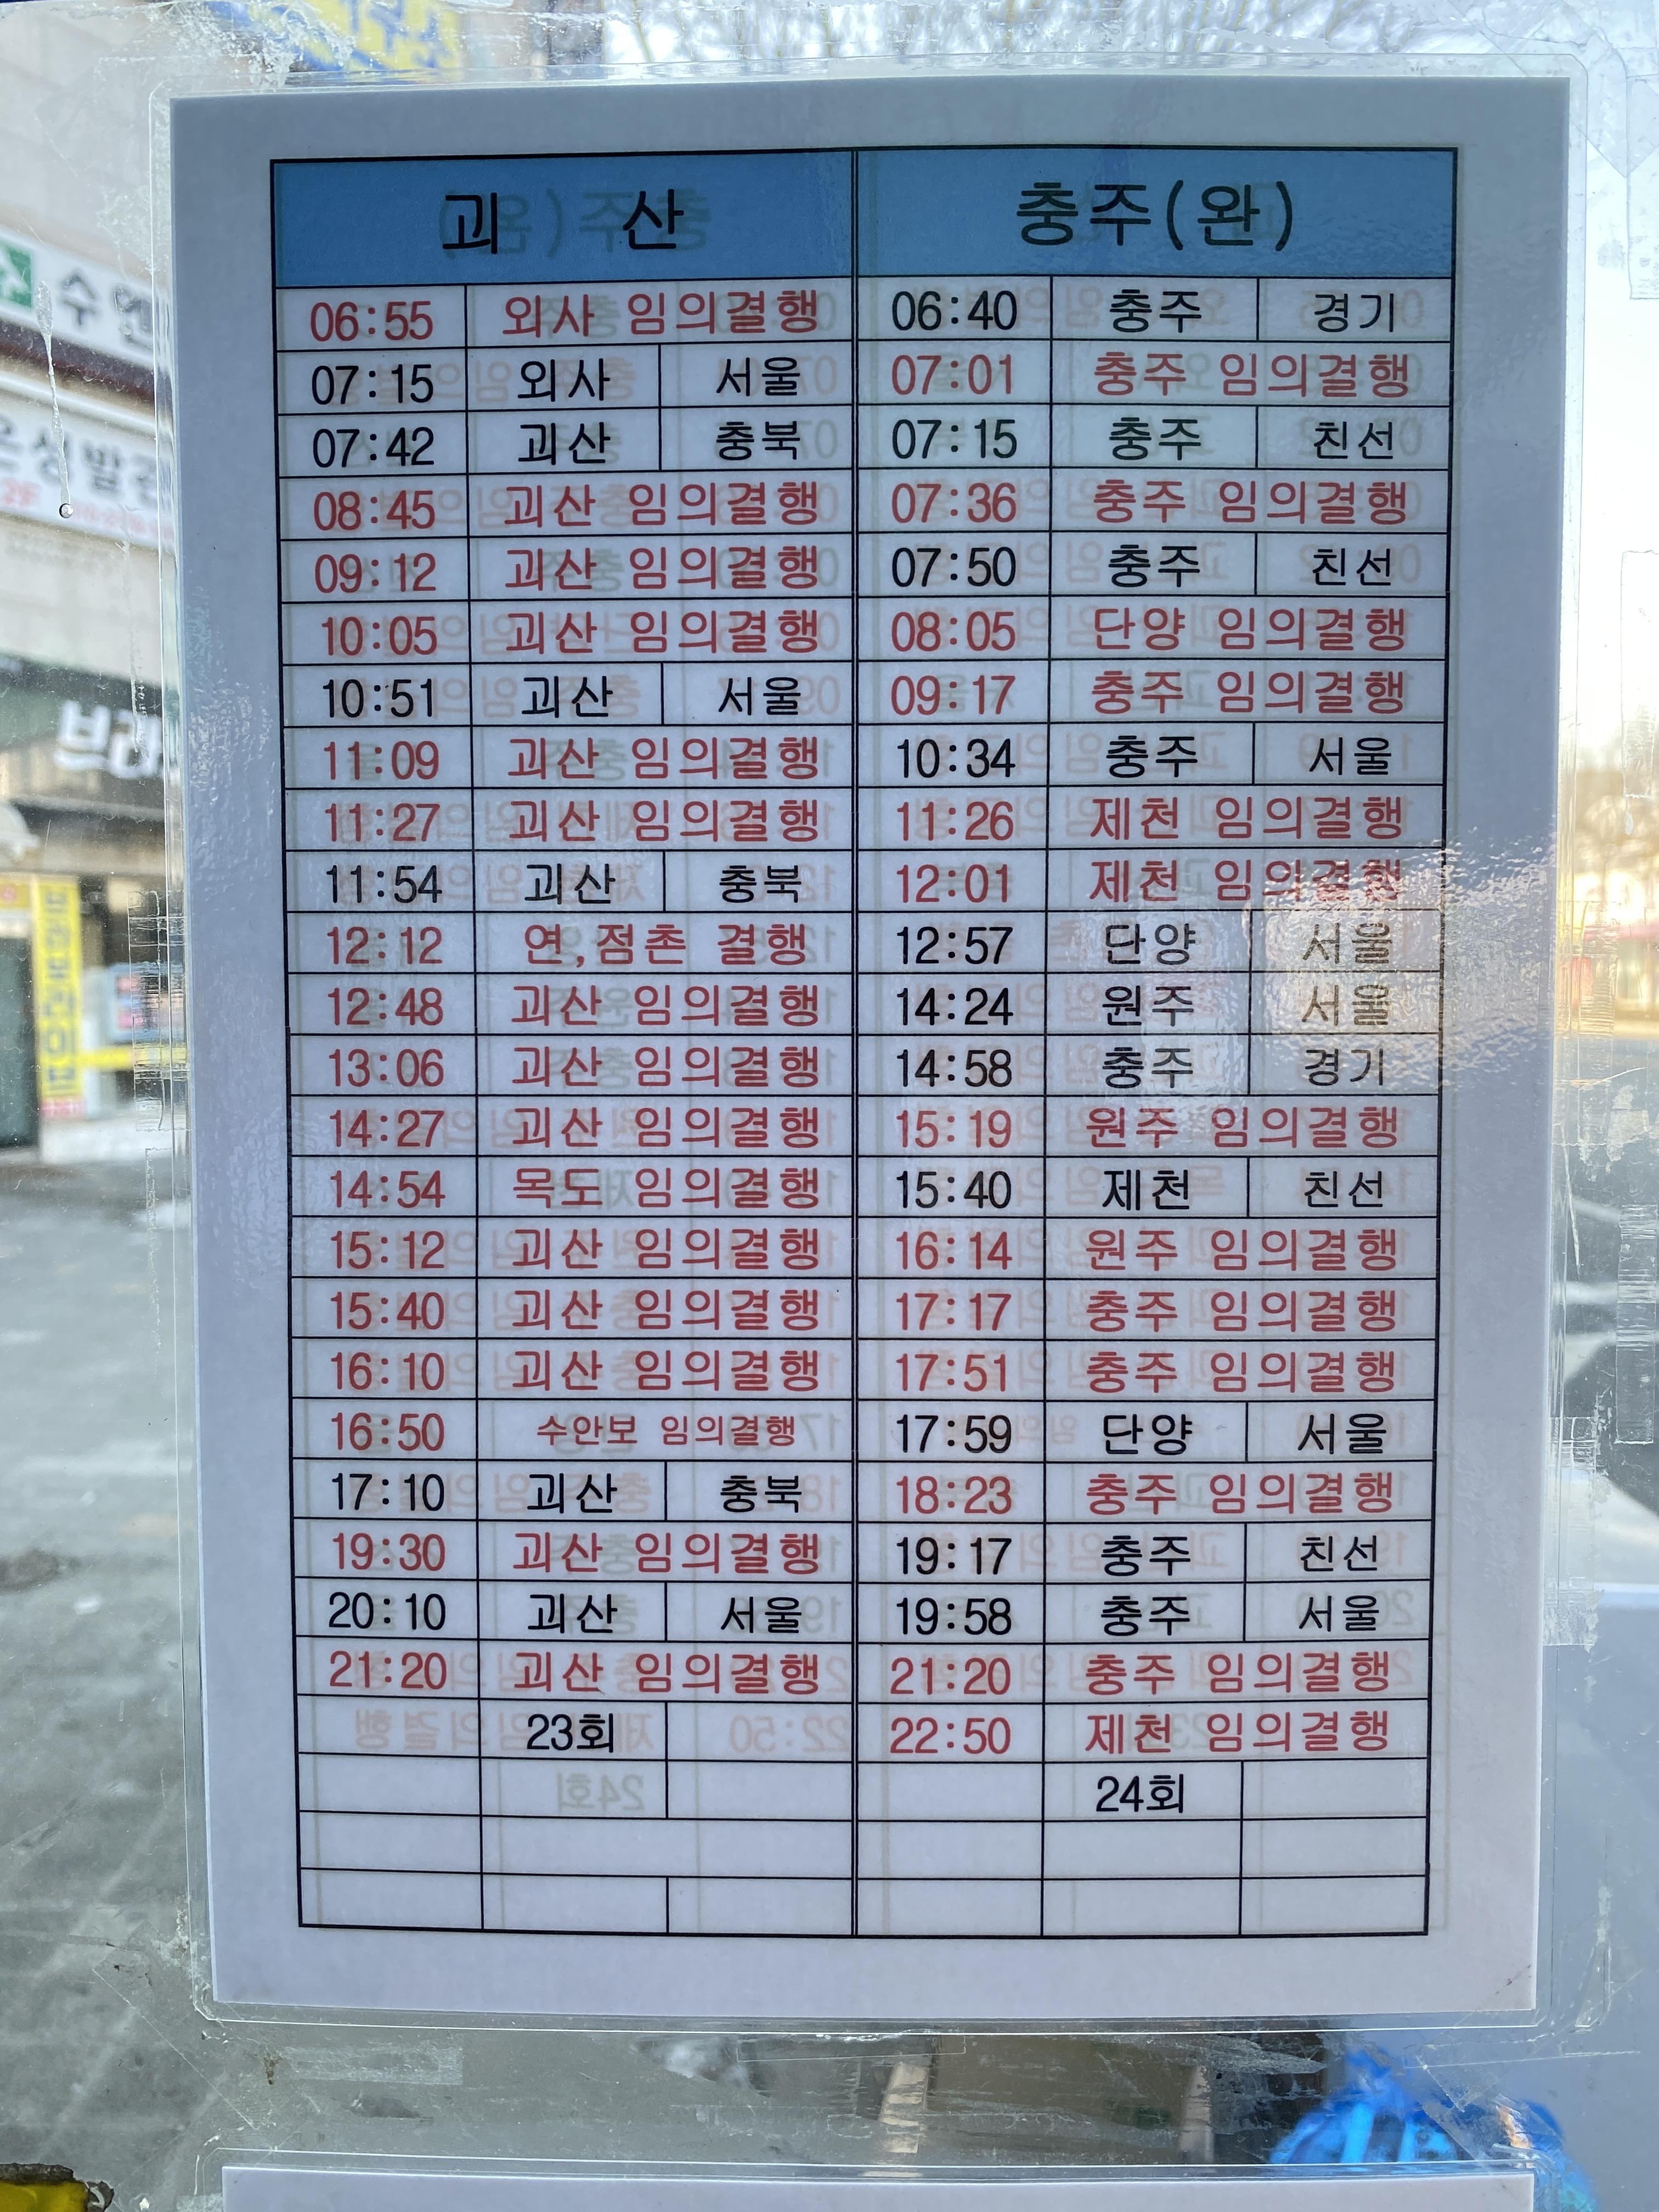 괴 산 충주(완)
06:55 외사 임의결행 06:40 충주 경기
07:15 외사 서울 07:01 충주 임의결행
07:42 괴산 충북 07:15 충주 친선
08:45 괴산 임의결행 07:36 충주 임의결행
09:12 괴산 임의결행 07:50 충주 친선
10:05 괴산 임의결행 08:05 단양 임의결행
10:51 괴산 서울 09:17 충주 임의결행
11:09 괴산 임의결행 10:34 충주 서울
11:27 괴산 임의결행 11:26 제천 임의결행
11:54 괴산 충북 12:01 제천 임의결행
12:12 연,점촌 결행 12:57 단양 서울
12:48 괴산 임의결행 14:24 원주 서울
13:06 괴산 임의결행 14:58 충주 경기
14:27 괴산 임의결행 15:19 원주 임의결행
14:54 목도 임의결행 15:40 제천 친선
15:12 괴산 임의결행 16:14 원주 임의결행
15:40 괴산 임의결행 17:17 충주 임의결행
16:10 괴산 임의결행 17:51 충주 임의결행
16:50 수안보 임의결행 17:59 단양 서울
17:10 괴산 충북 18:23 충주 임의결행
19:30 괴산 임의결행 19:17 충주 친선
20:10 괴산 서울 19:58 충주 서울
21:20 괴산 임의결행 21:20 충주 임의결행
23회 22:50 제천 임의결행
24회